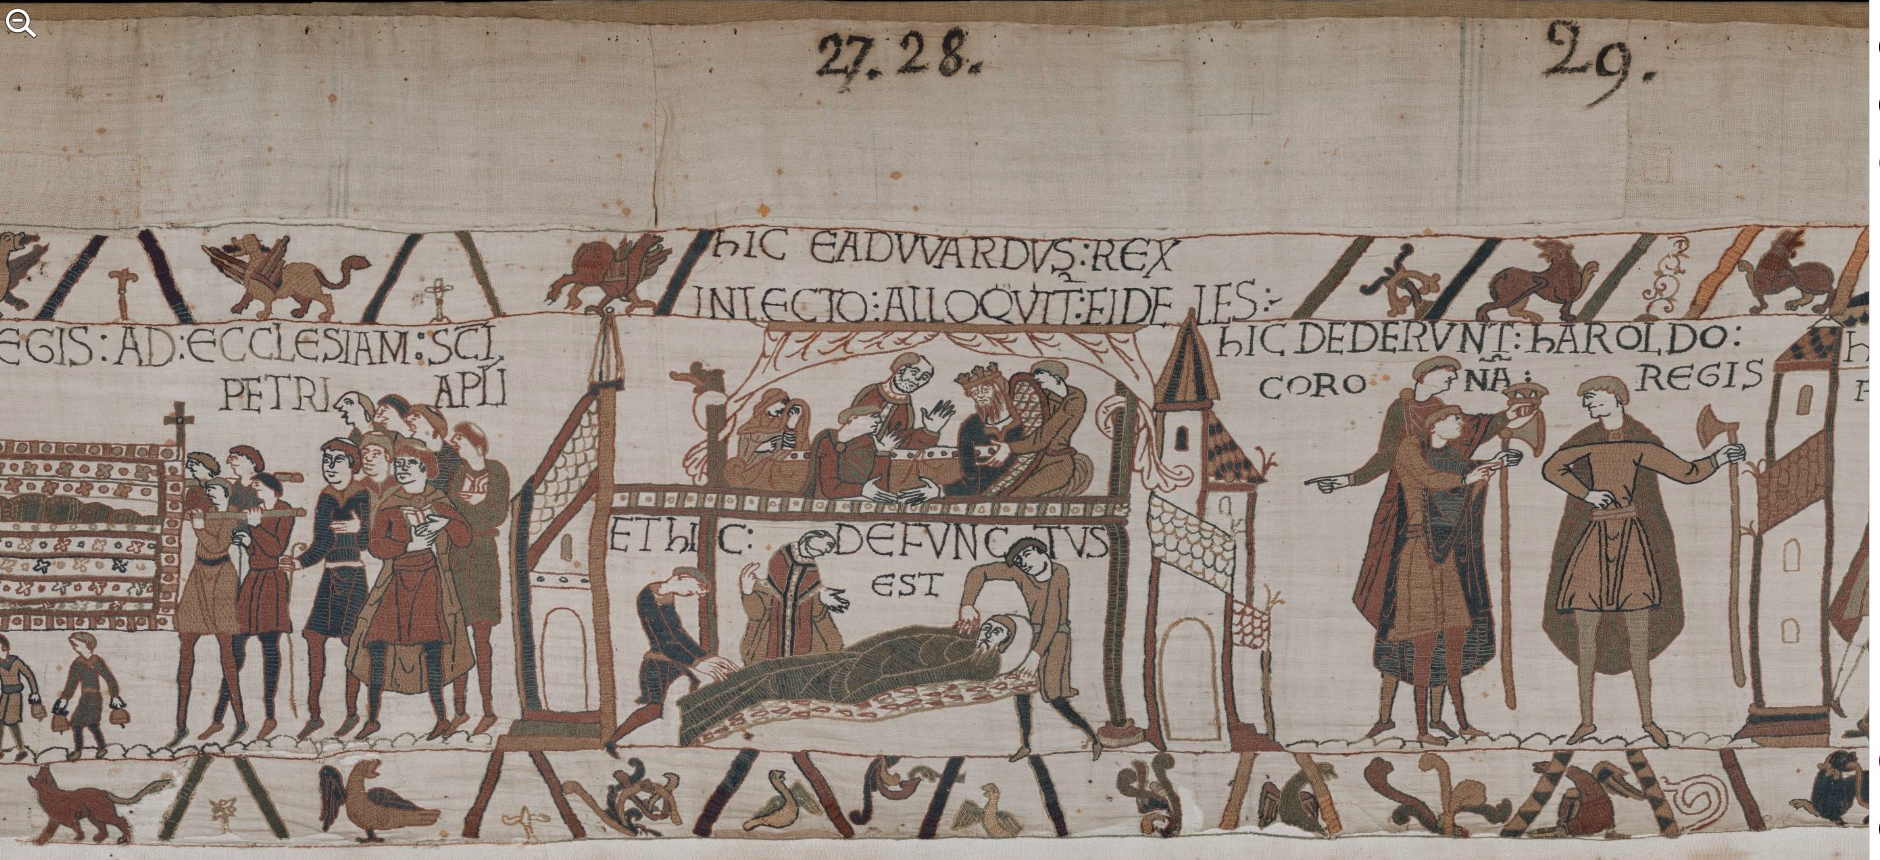 27. 28.
29.
EGIS: AD: ECCLESIAM: SCĪ
PETRI APLI
hIC EADVVARDVS: REX
INLECTO: ALLOQVIT: FIDELES:
ET hIC: DEFVNCTVS
EST
hIC DEDERVNT: hAROLDO:
CORONA: REGIS